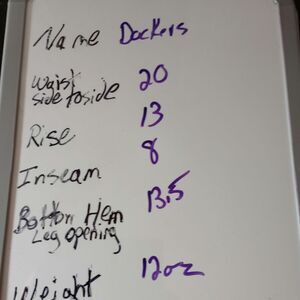 Name Dockers
Waist 20
side to side
13
Rise
8
Inseam
13.5
Bottom Hem
Leg opening
12oz
Weight